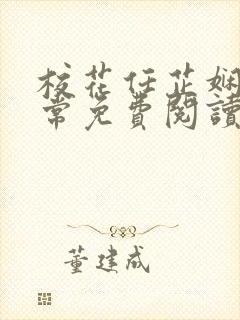 校花任芷娴
常免費閱讀
董建成